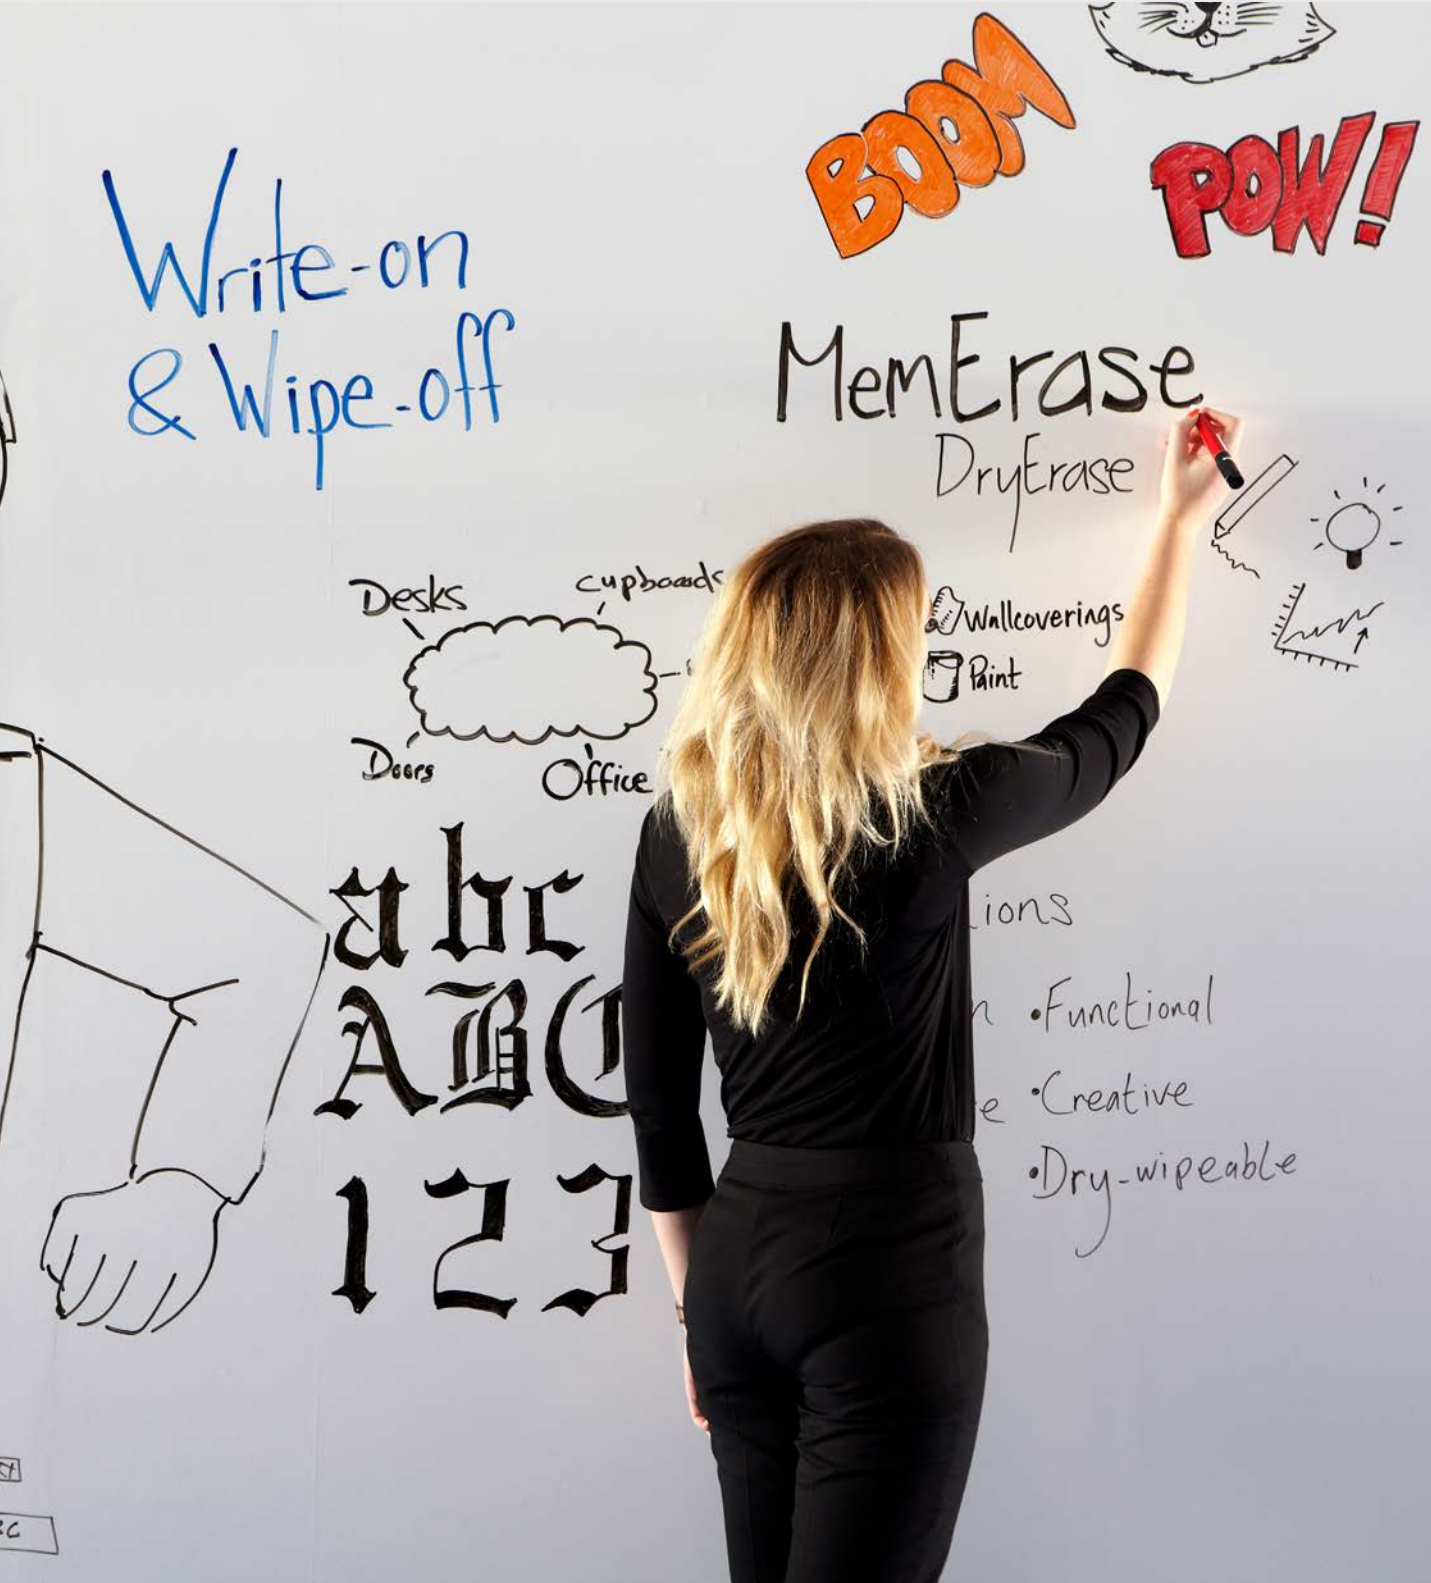 BOOM
POW!
Write-on
& Wipe-off
MemErase
DryErase
Desks
cupboards
Wallcoverings
Paint
Doors
Office
abc
ABC
123
• Functional
• Creative
• Dry-wipeable